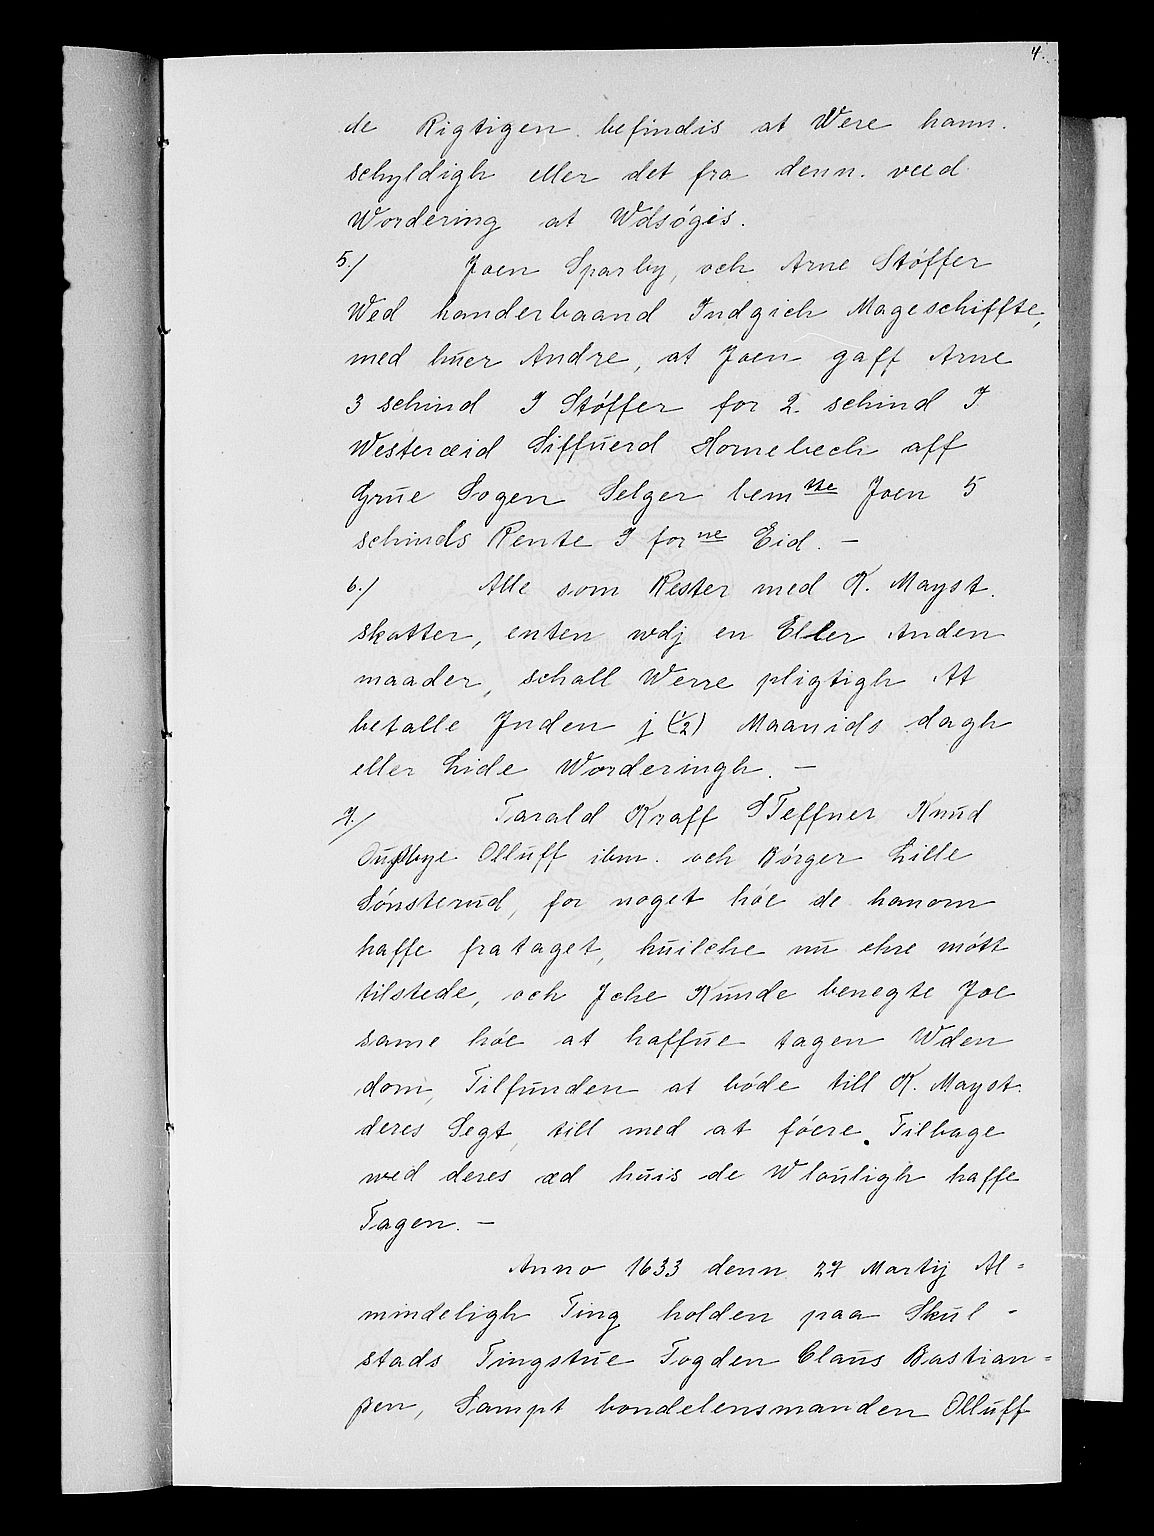 4.
de Rigtigen befindis at Were hann.
schyldigh eller det fra denn. veed
Wordering at Wdsøgis.
5./ Joen Sparby, och Arne Støffer
Wed handerbaand Indgich Mageschiffte,
med huer Andre, at Joen gaff Arne
3 schind I Støffer for 2. schind I
Westeræid Siffuerd Hornebech aff
Grue Sogen Selger bemte Joen 5
schinds Rente I forne Eid. —
6./ Alle som Rester med K. Mayst.
skatter, enten wdj en Eller Anden
maader, schall Werre pligtigh At
betalle Jnden j (½) Maanids dagh
eller Lide Worderingh. —
7./ Tarald Kraff STeffner Knud
Oußbye Olluff ibm. och Børger Lille
Sønsterud, for noget høe de hanom
haffe frataget, huilche nu ehre møtt
tilstede, och Jche Kunde benegte Joe
same høe at haffue tagen Wden
dom, Tilfunden at bøde till K. Mayst.
deres Segt, till med at føere. Tilbage
wed deres æd huis de Wlouligh haffe
Tagen. —
Anno 1633 denn 27 Martij Al=
mindeligh Ting holden paa Skul-
stads Tingstue Fogden Claus Bastian=
ßen, Sampt bondelensmanden Olluff